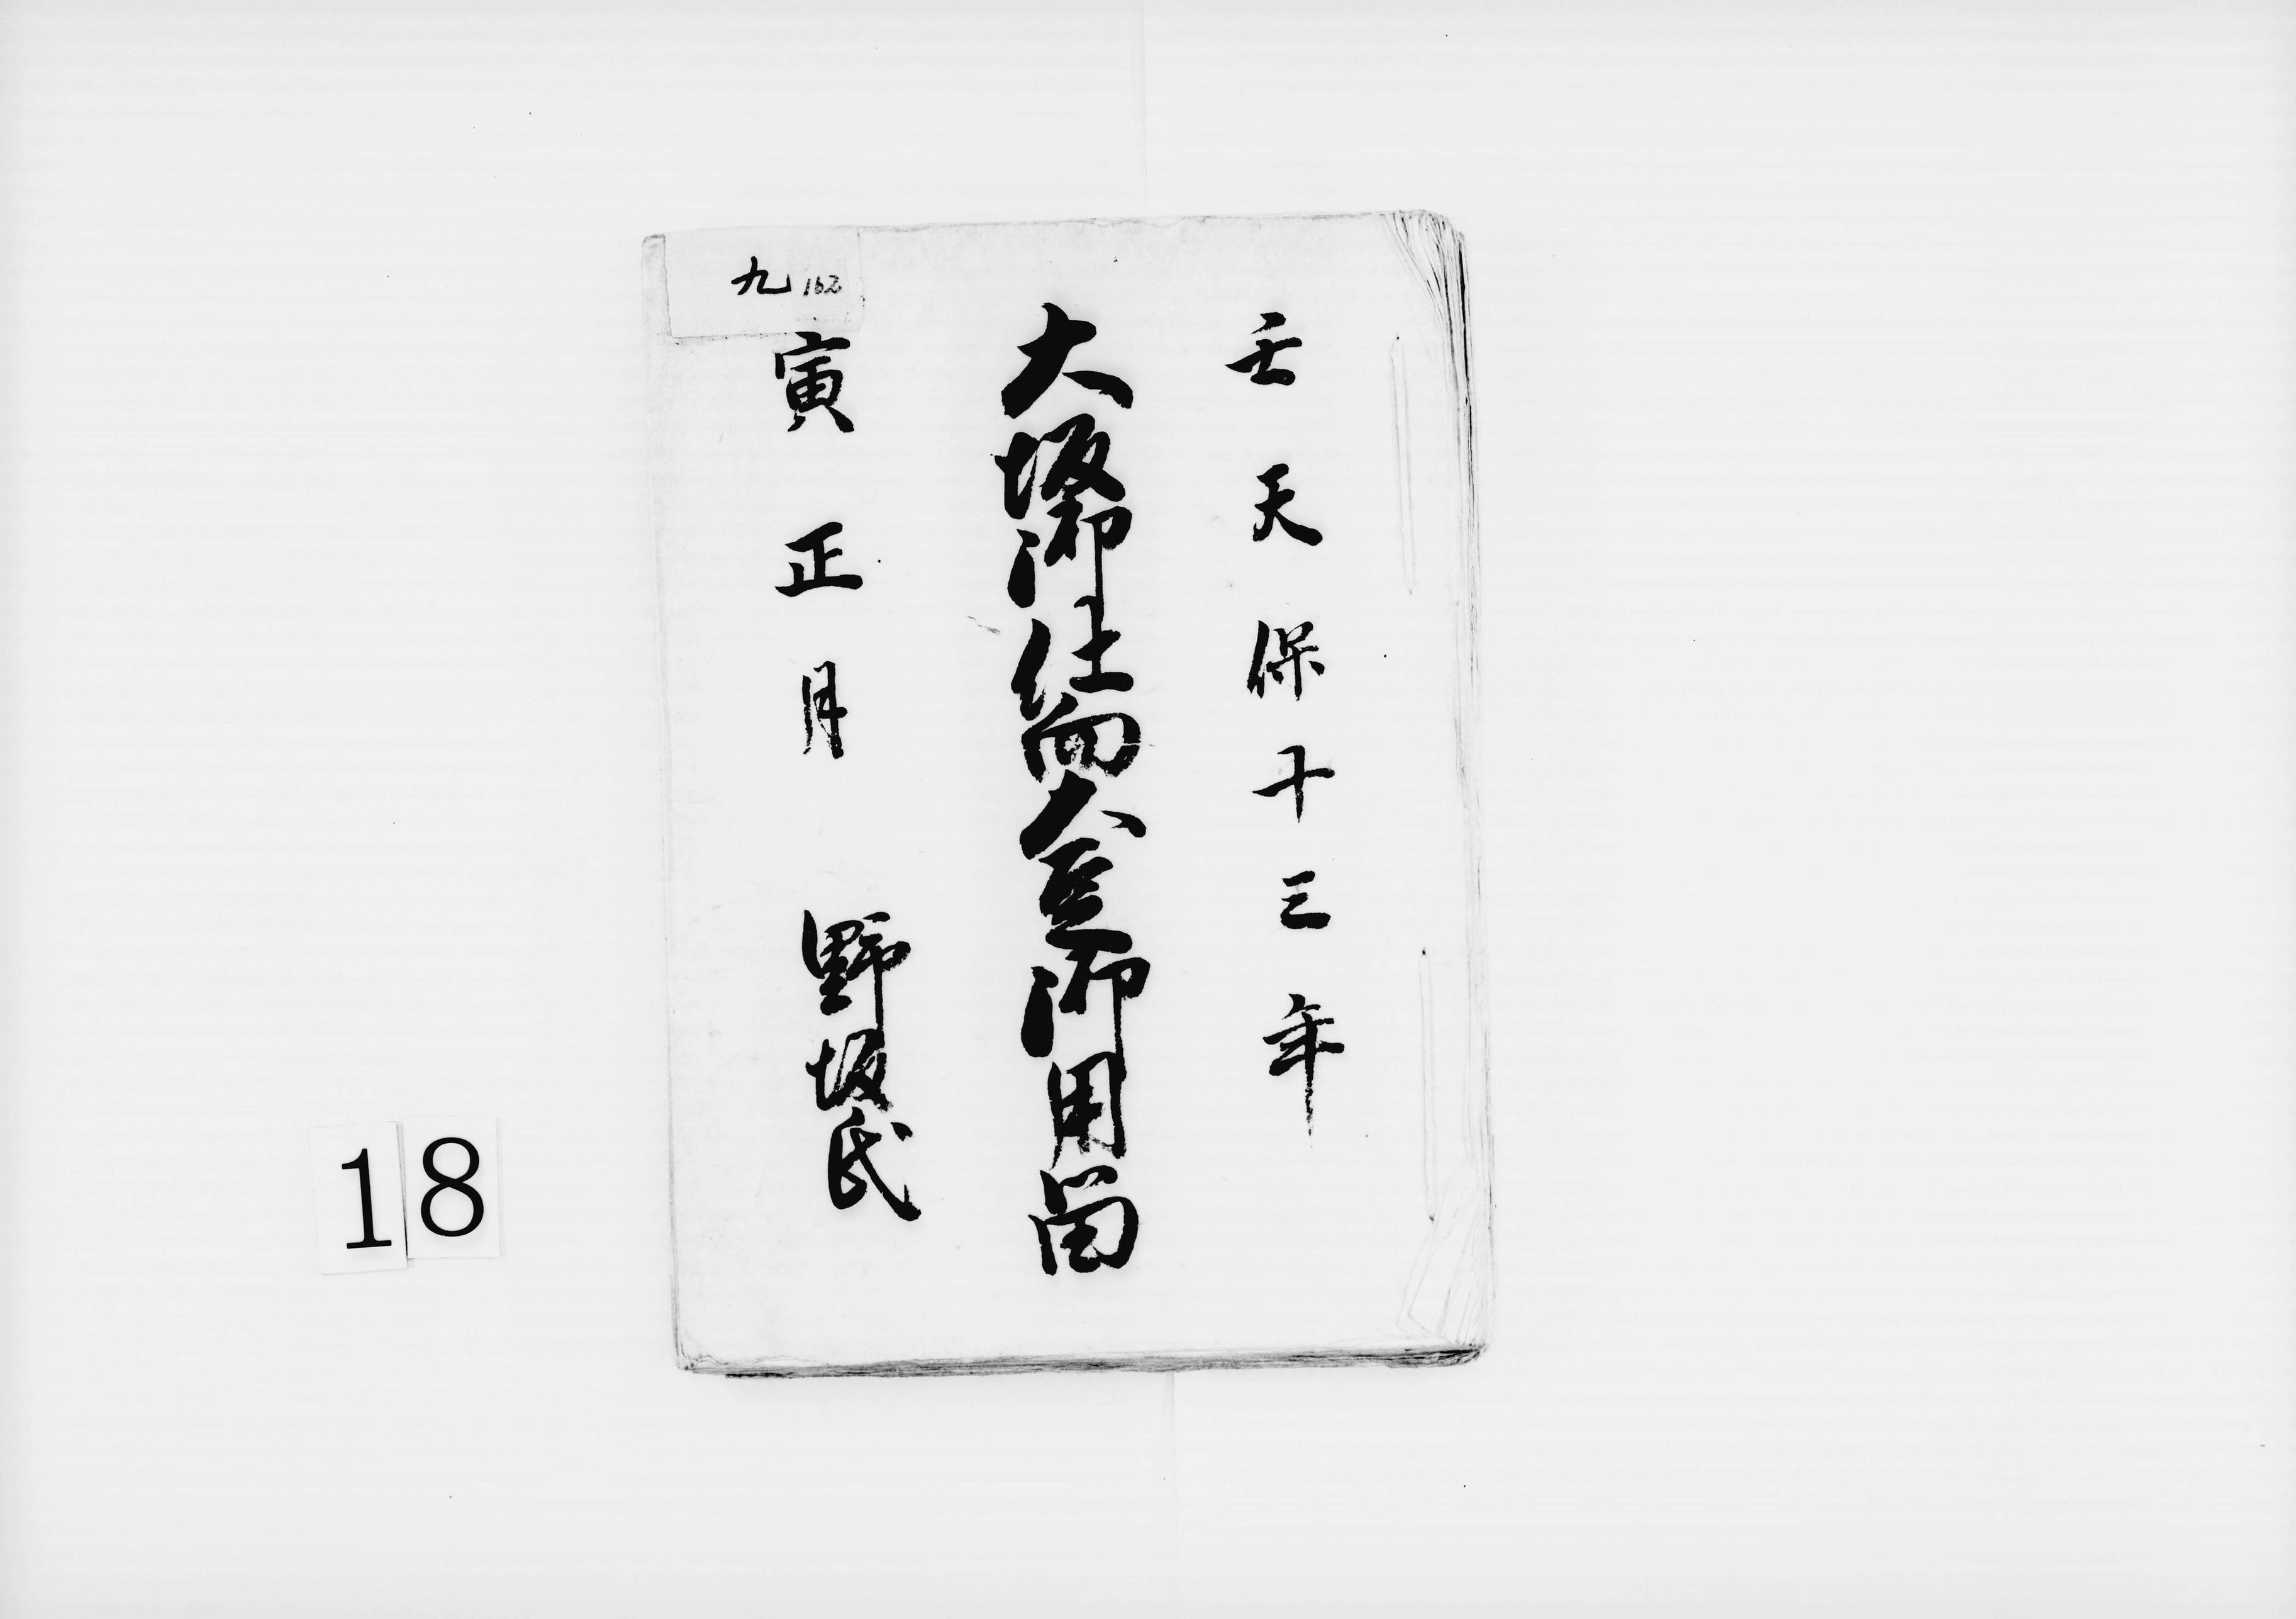 壬天保十三年
大坂御仕向大豆御用留
九 162
寅正月 野坂氏
18